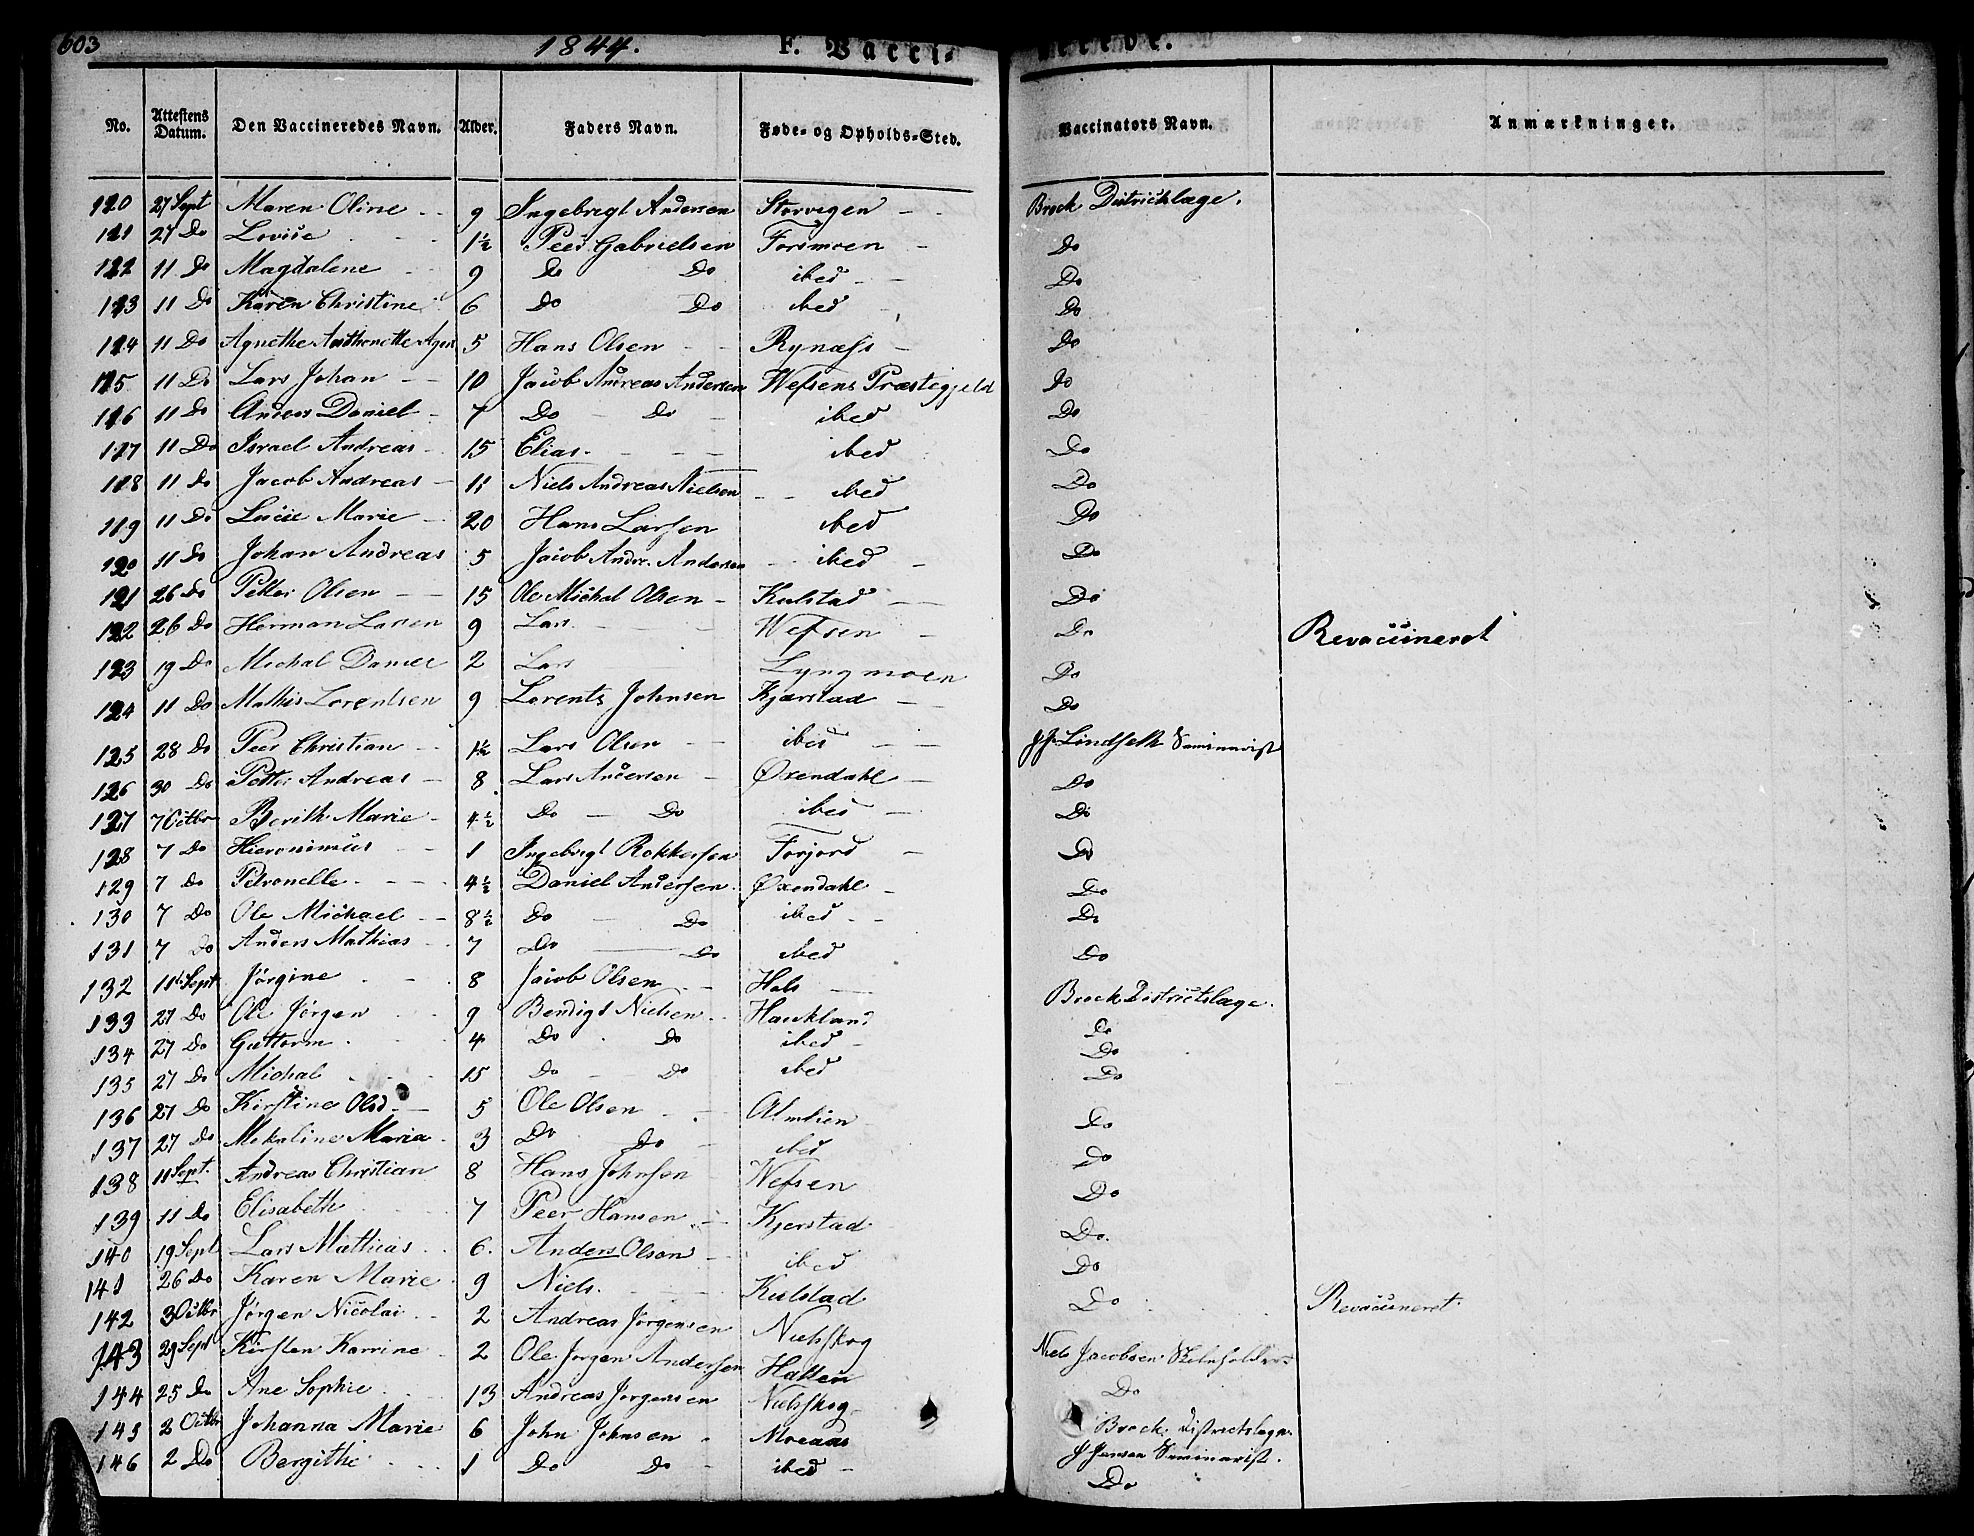 603 1844. F. Vacci- nerede.
No. Attestens Datum. Den Vaccineredes Navn. Alder. Faders Navn. Føde- og Opholds-Sted. Vaccinators Navn. Anmærkninger.
110 27 Sept Maren Oline 9 Ingebrigt Andersen Storvegen Brock Districtslæge.
111 27 Do Lovise 1½ Peer Gabrielsen Forsmoen Do
112 11 Do Magdalene 9 Do Do ibed Do
113 11 Do Karen Christine 6 Do Do ibed Do
114 11 Do Agnethe Anthonette 5 Hans Olsen Rynæss Do
115 11 Do Lars Johan 10 Jacob Andreas Andersen Wefsens Præstegjeld Do
116 11 Do Anders Daniel 7 Do Do ibed Do
117 11 Do Israel Andreas 15 Elias ibed Do
118 11 Do Jacob Andreas 11 Niels Andreas Nielsen ibed Do
119 11 Do Lucie Marie 20 Hans Larsen ibed Do
120 11 Do Johan Andreas 5 Jacob Andr. Andersen ibed Do
121 26 Do Petter Olsen 15 Ole Michal Olsen Kulstad Do
122 26 Do Herman Larsen 9 Lars Wefsen Do Revaccineret
123 19 Do Michal Daniel 2 Lars Lyngmoen Do
124 11 Do Mathis Lorentsen 9 Lorents Johnsen Kjærstad Do
125 28 Do Peer Christian 1½ Lars Olsen ibed Lindseth Seminarist
126 30 Do Petter Andreas 8 Lars Andersen Øxendahl Do
127 7 Octbr Berith Marie 4½ Do Do ibed Do
128 7 Do Hieronimus 1 Ingebrigt Rokkersen Forjord Do
129 7 Do Petronelle 4½ Daniel Andersen Øxendahl Do
130 7 Do Ole Michael 8½ Do Do ibed Do
131 7 Do Anders Mathias 7 Do Do ibed Do
132 11 Sept Jørgine 8 Jacob Olsen Hals Brock Districtslæge.
133 27 Do Ole Jørgen 9 Bendigt Nielsen Haukland Do
134 27 Do Guttorm 4 Do Do ibed Do
135 27 Do Michal 15 Do Do ibed Do
136 27 Do Kirstine Olsd 5 Ole Olsen Almlien Do
137 27 Do Mekaline Maria 3 Do Do ibed Do
138 11 Sept. Andreas Christian 8 Hans Johnsen Wefsen Do
139 11 Do Elisabeth 7 Peer Hansen Kjerstad Do.
140 19 Sept Lars Mathias 6. Anders Olsen ibed Do
141 26 Do Karen Marie 9 Niels Kulstad Do Revaccineret.
142 3 Octbr Jørgen Nicolai 2 Andreas Jørgensen Nielsskog Niels Jacobsen Skoleholder
143 29 Sept Kirsten Karrine 2 Ole Jørgen Andersen Hatten Do
144 25 Do Ane Sophie 13 Andreas Jørgensen Nielsskog Brock Districtslæge
145 2 Octbr Johanna Marie 6 John Johnsen Moeaas J Jensen Seminarist.
146 2 Do Bergithe 1 Do Do ibed Do